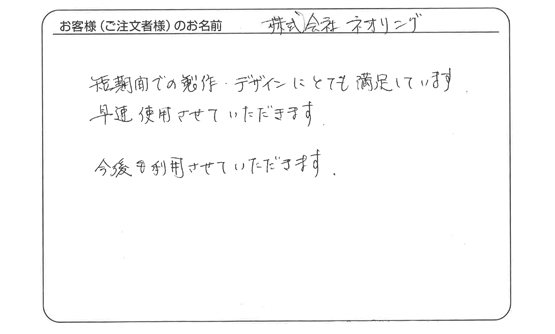 お客様（ご注文者様）のお名前 株式会社 ネオリング
短期間での製作・デザインにとても満足しています.
早速使用させていただきます.
今後も利用させていただきます.